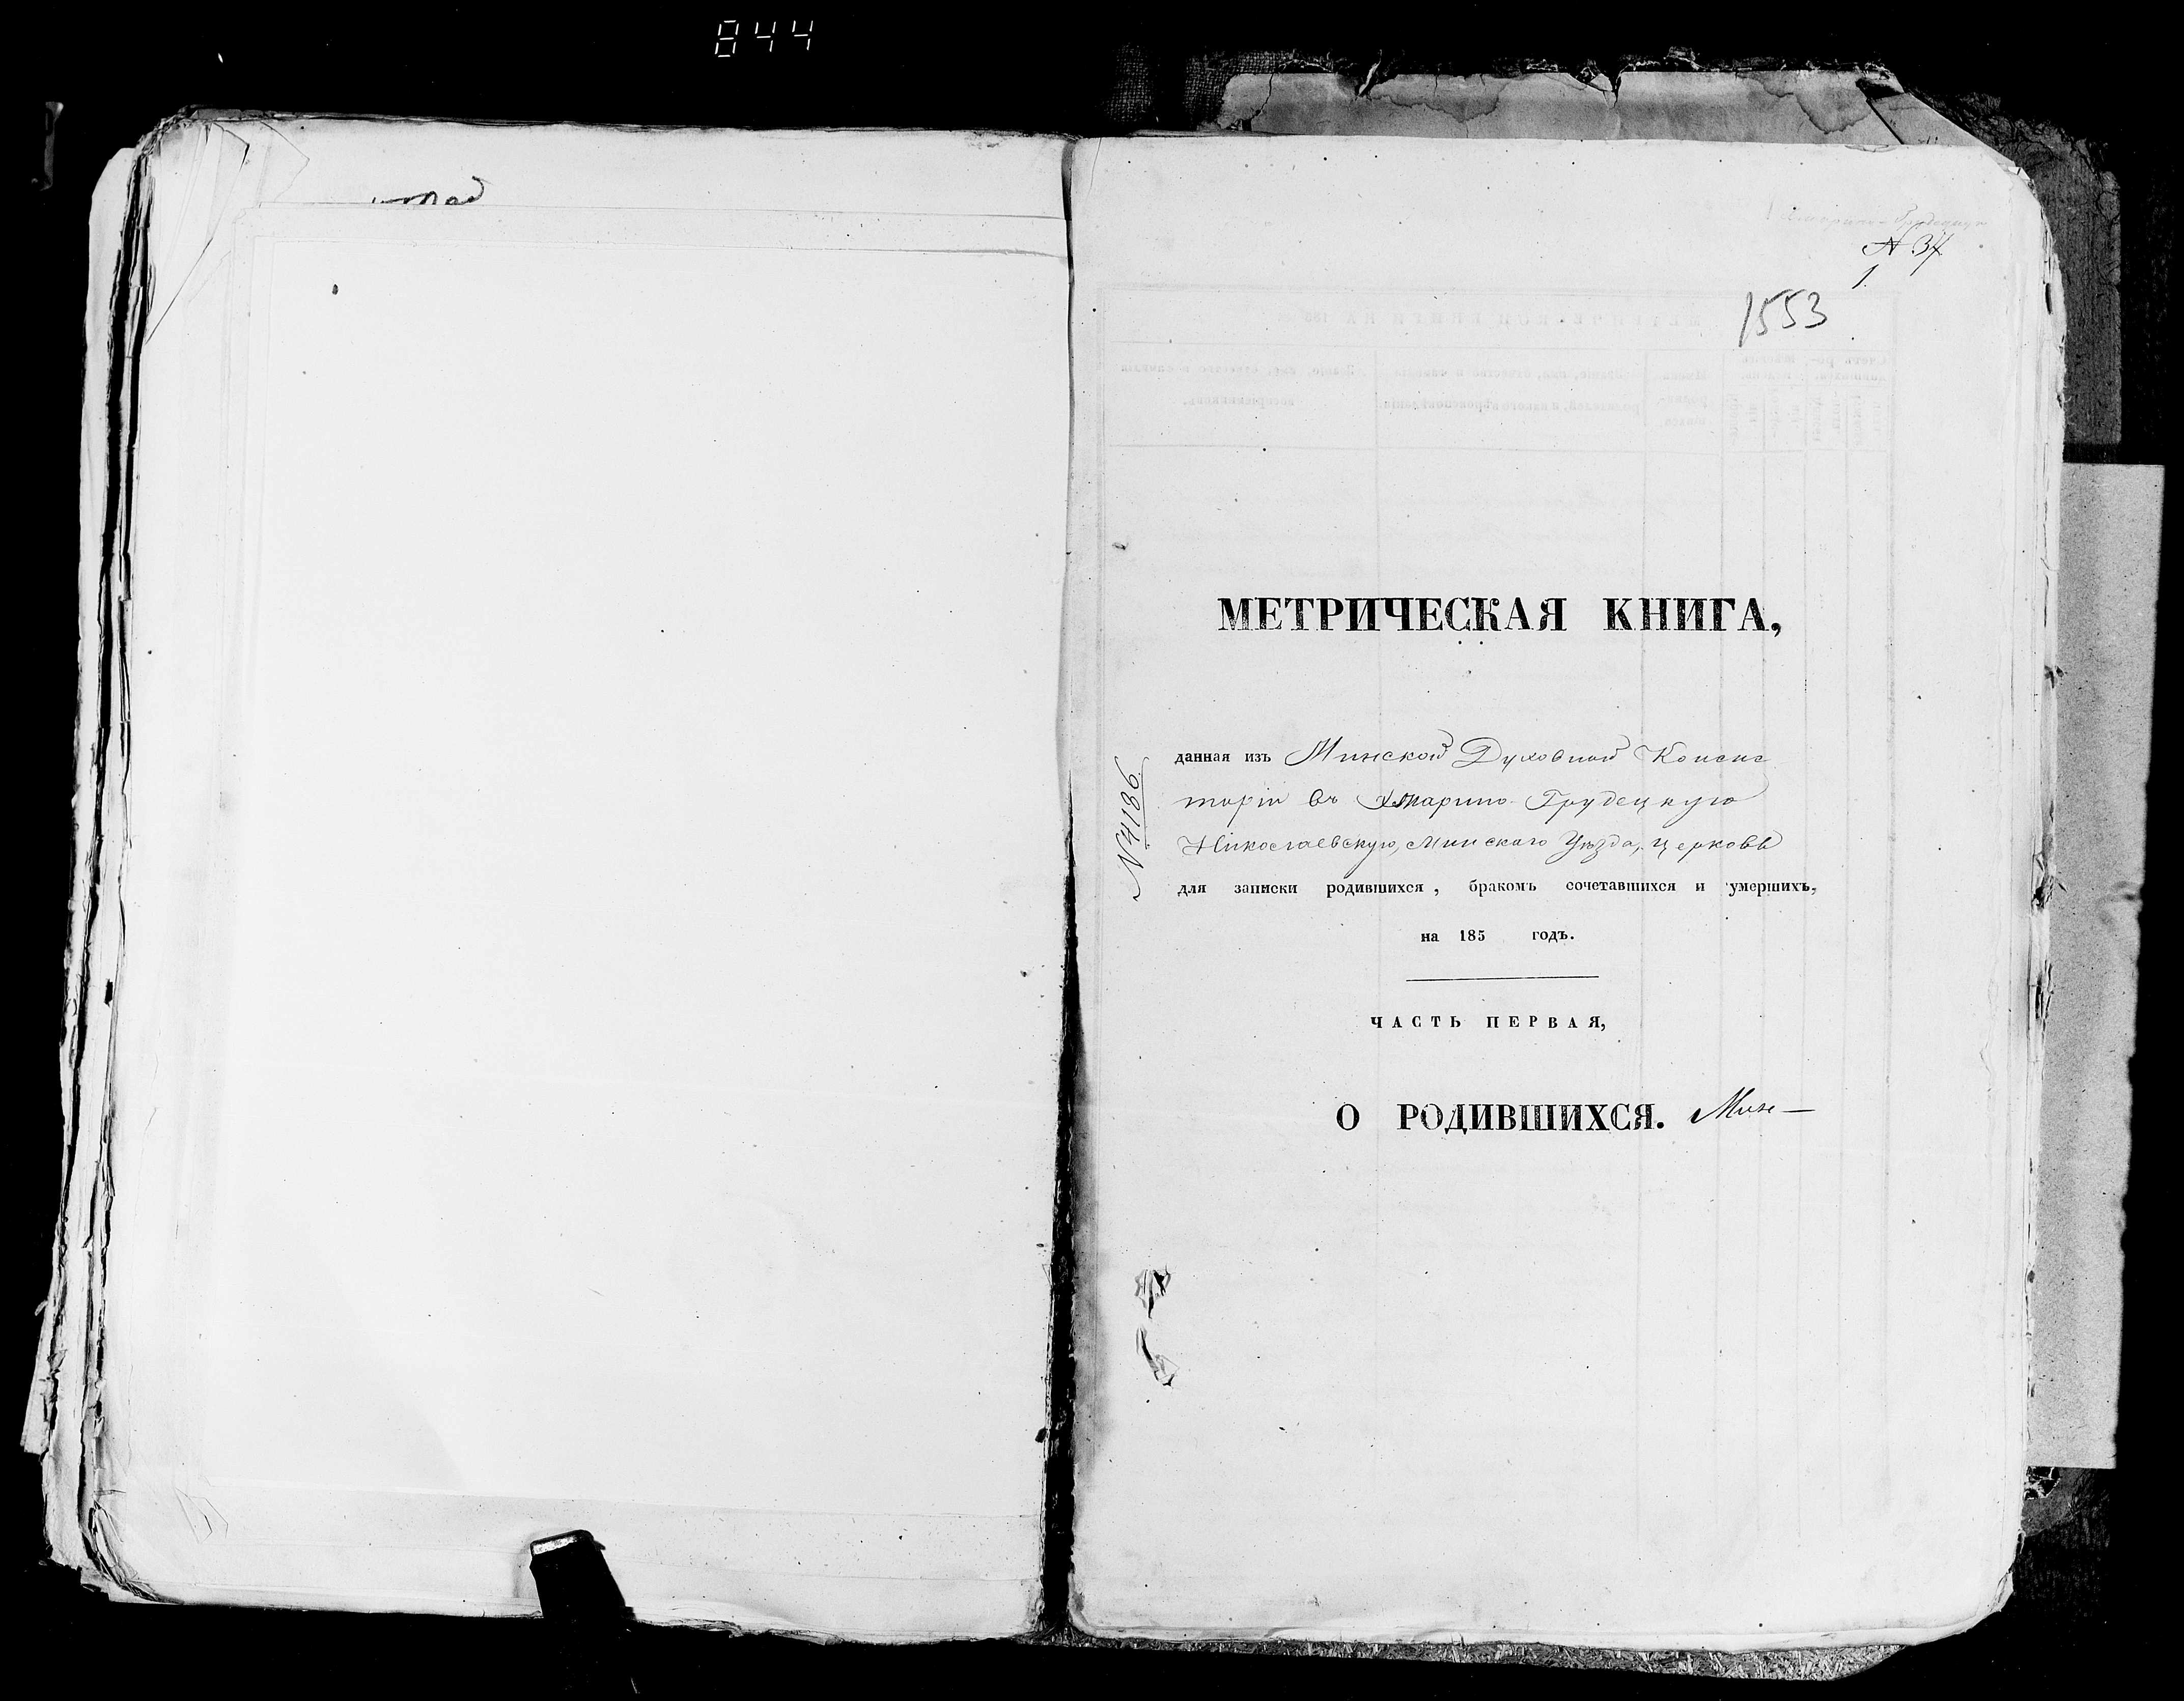 844
N 37
1.
1553
МЕТРИЧЕСКАЯ КНИГА,
данная изъ Минской Духовной Консис
торіи въ Хмарино-Грудецкую
Николаевскую, Минскаго Уѣзда, церковь
N 4186
для записки родившихся, бракомъ сочетавшихся и умершихъ,
на 185 годъ.
ЧАСТЬ ПЕРВАЯ,
О РОДИВШИХСЯ.